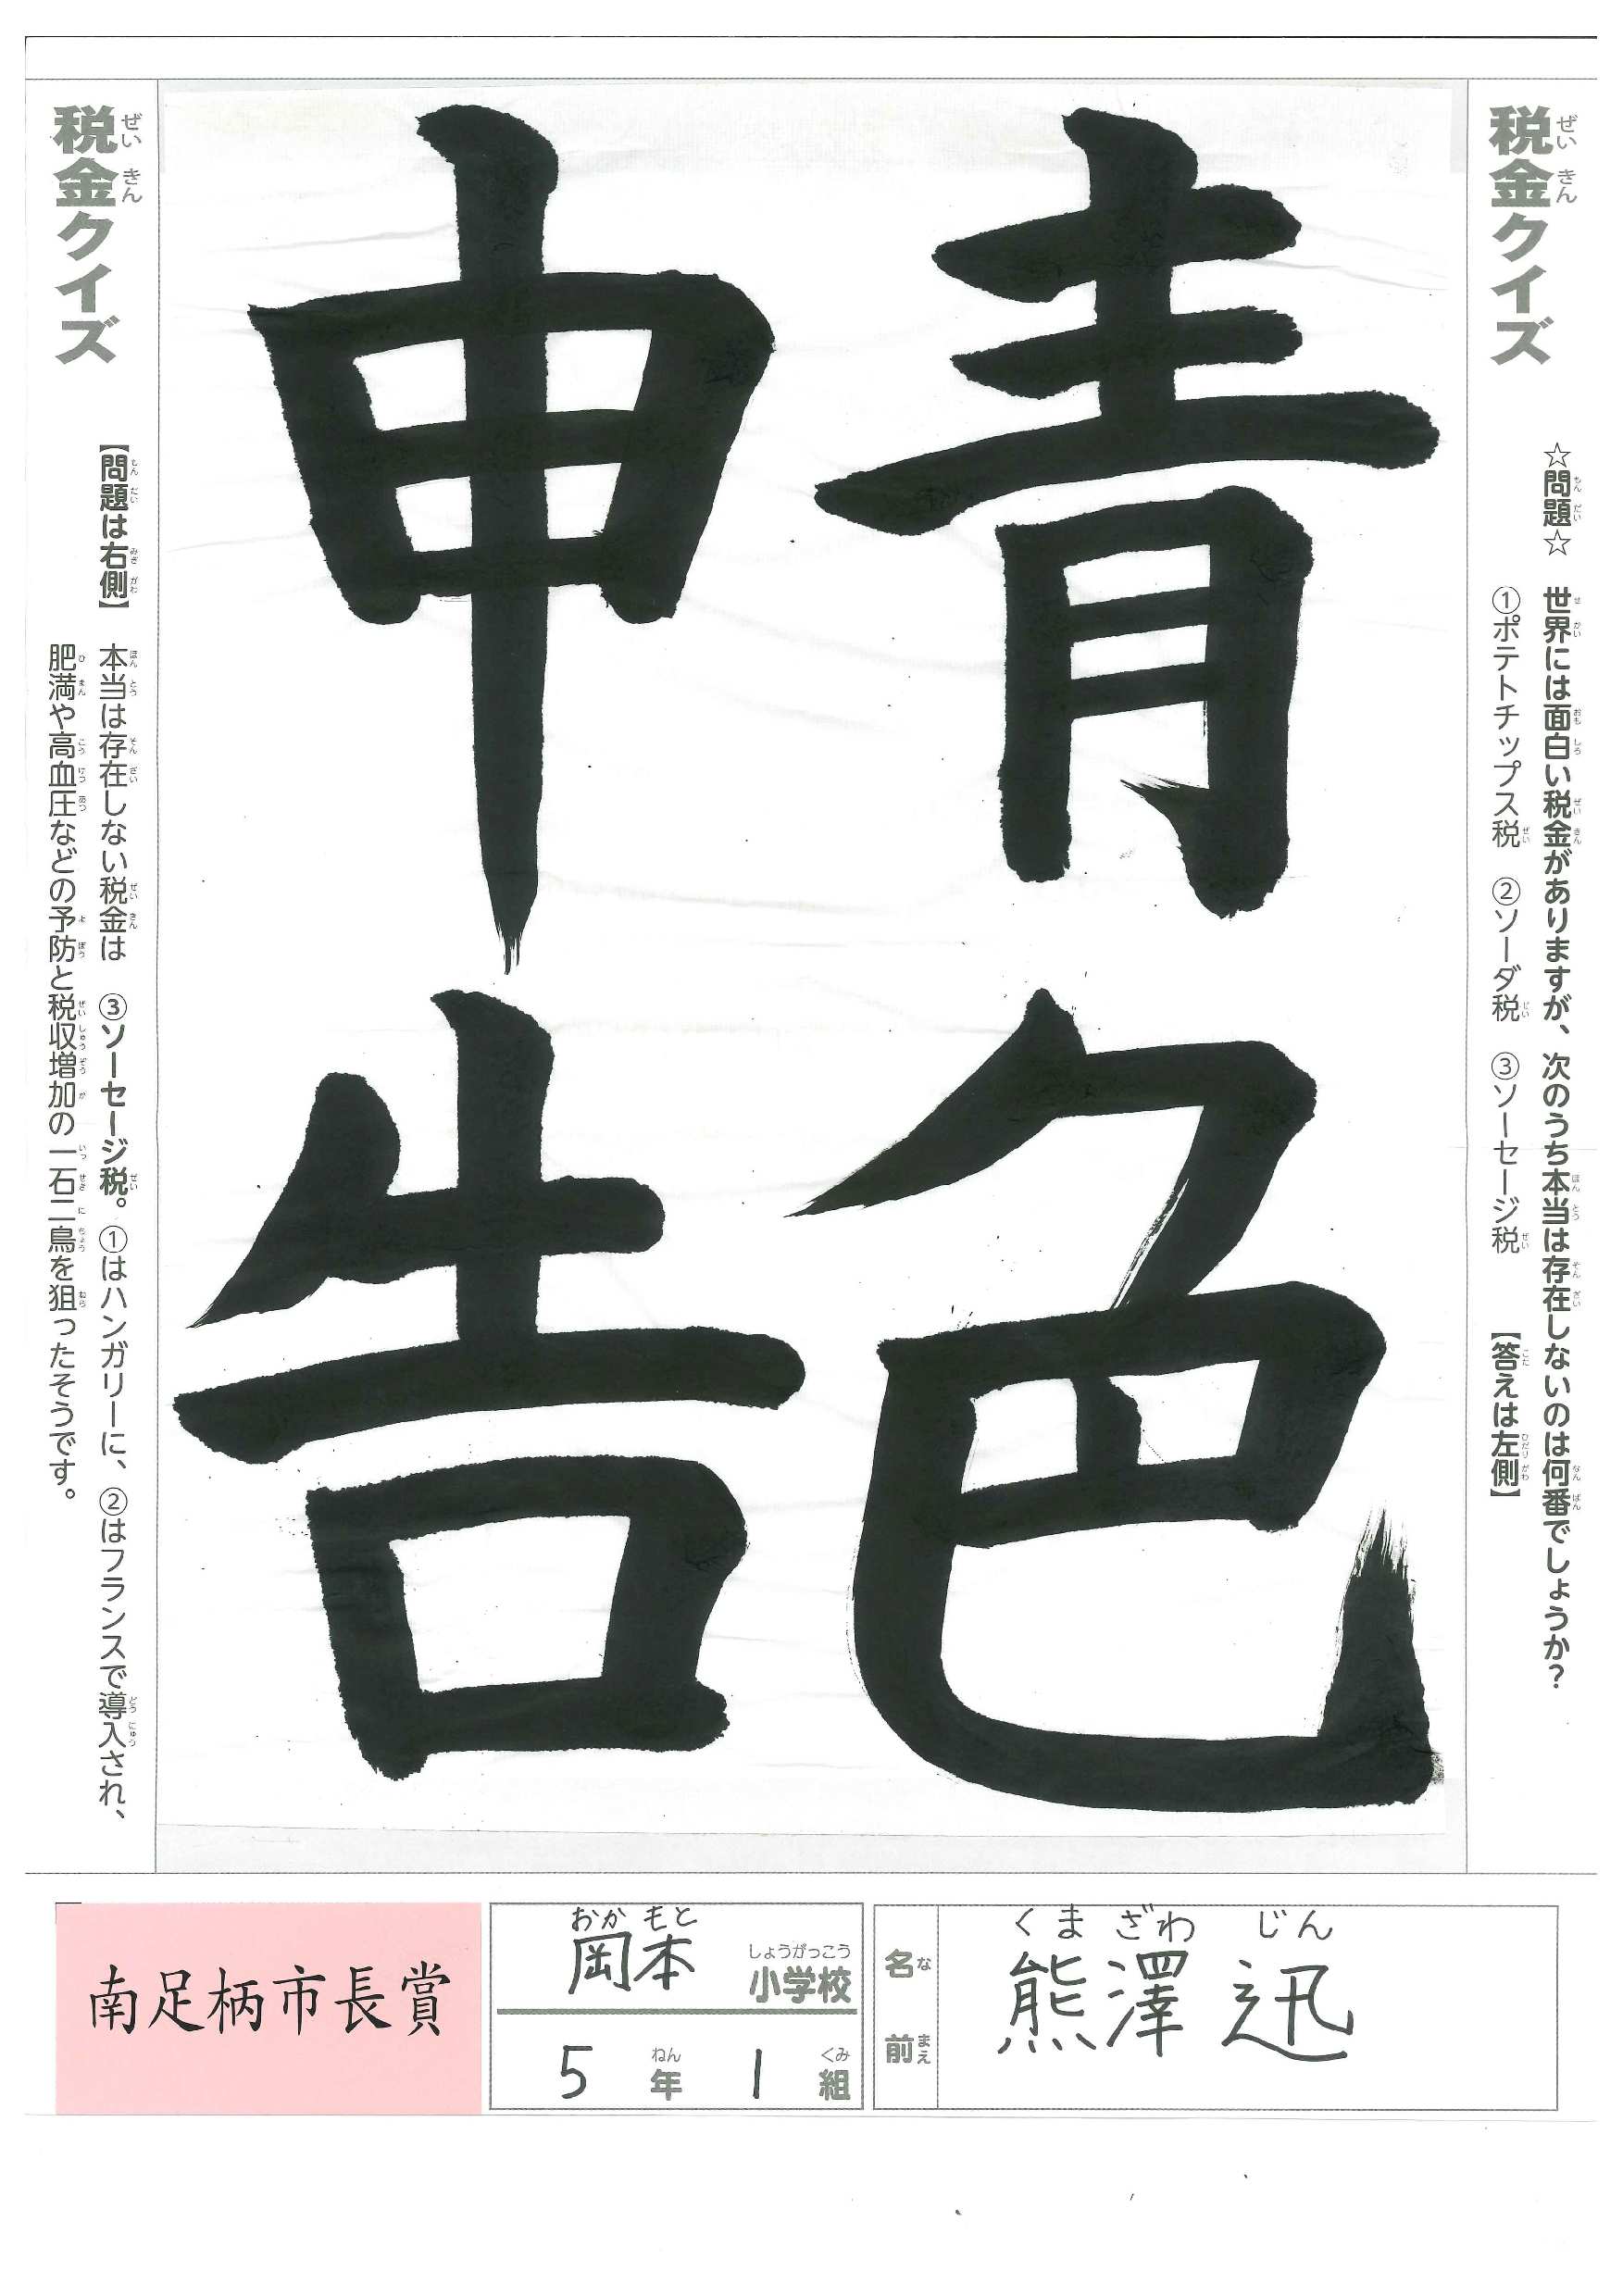 税金クイズ
☆問題☆ 世界には面白い税金がありますが、次のうち本当は存在しないのは何番でしょうか？
①ポテトチップス税 ②ソーダ税 ③ソーセージ税 【答えは左側】
青色
申告
税金クイズ
【問題は右側】 本当は存在しない税金は ③ソーセージ税。①はハンガリーに、②はフランスで導入され、
肥満や高血圧などの予防と税収増加の一石二鳥を狙ったそうです。
南足柄市長賞
おかもと しょうがっこう
岡本 小学校
ねん くみ
5年 1組
なまえ
名前
くまざわ じん
熊澤 迅